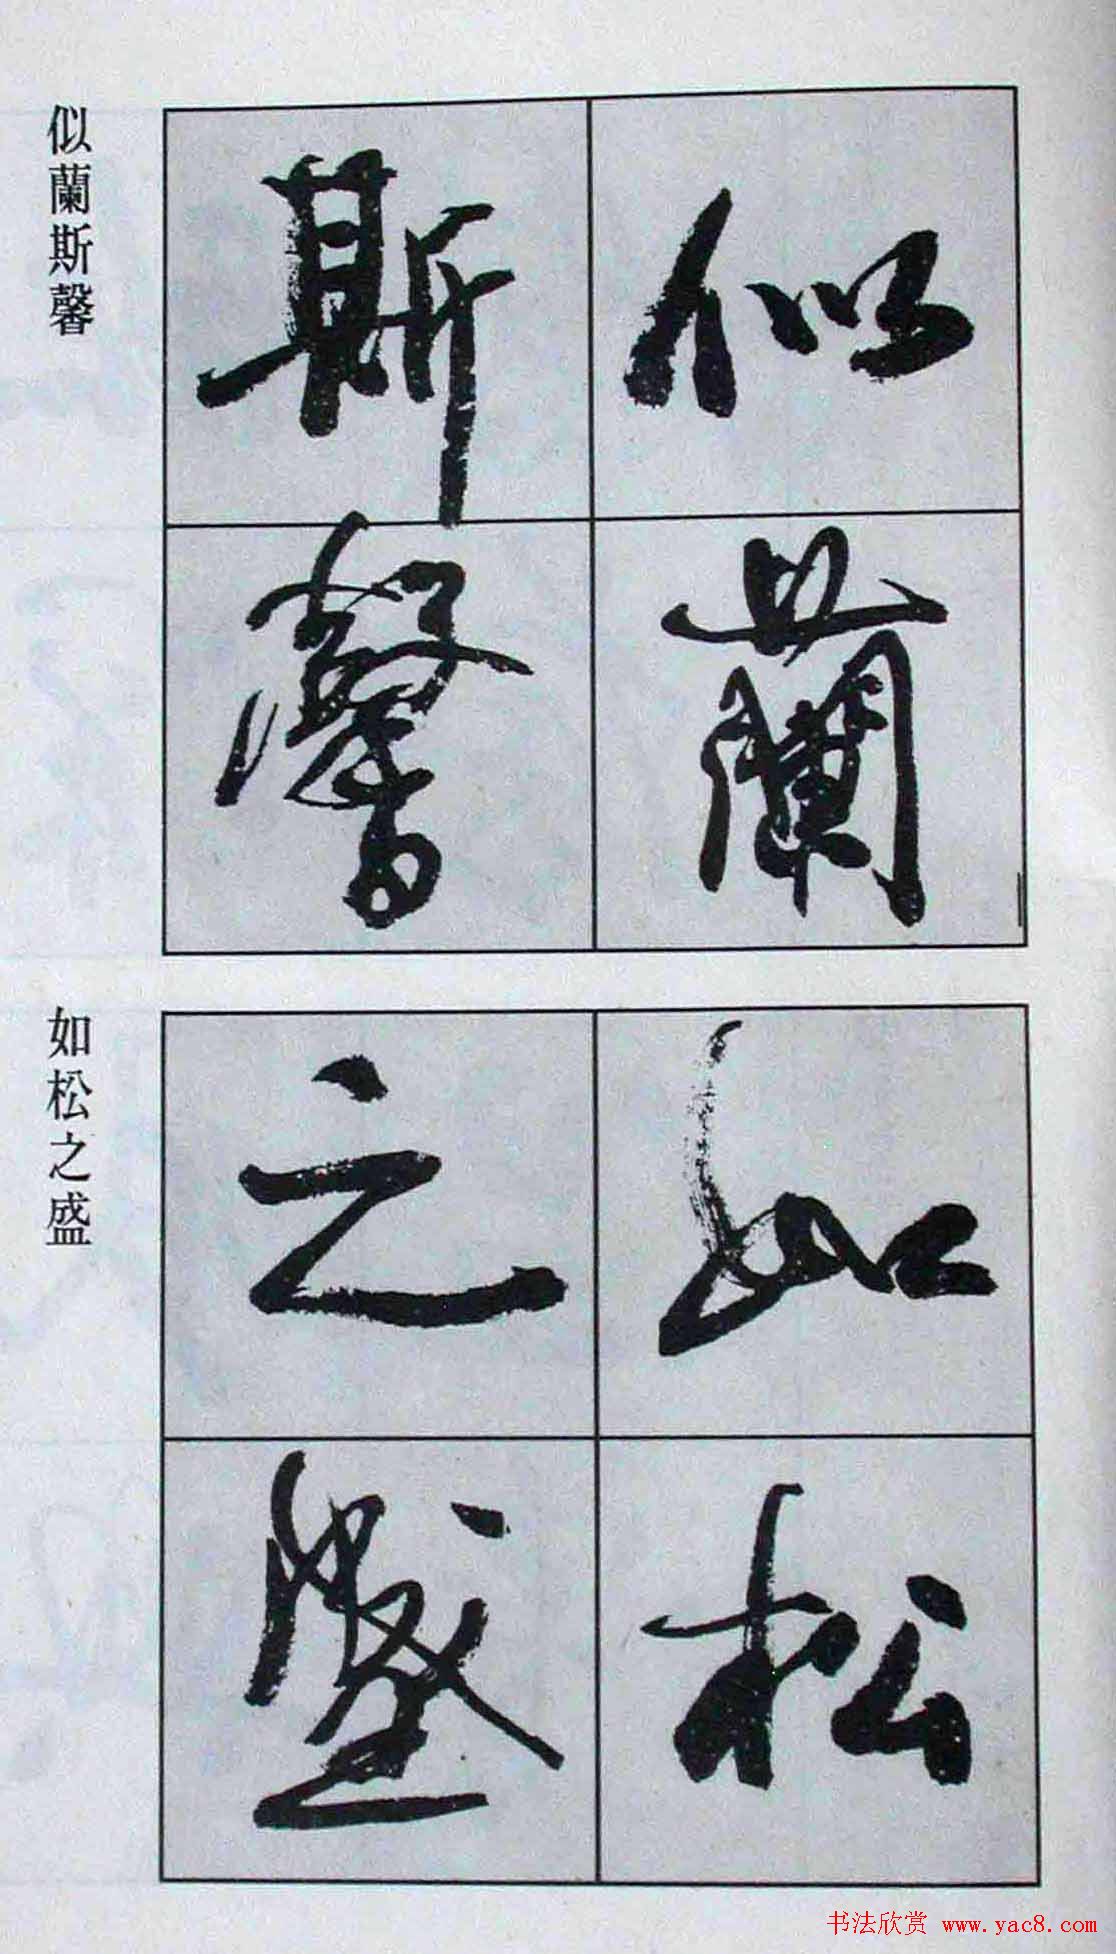 似蘭
斯馨
似蘭斯馨
如松
之盛
如松之盛
书法欣赏 www.yac8.com